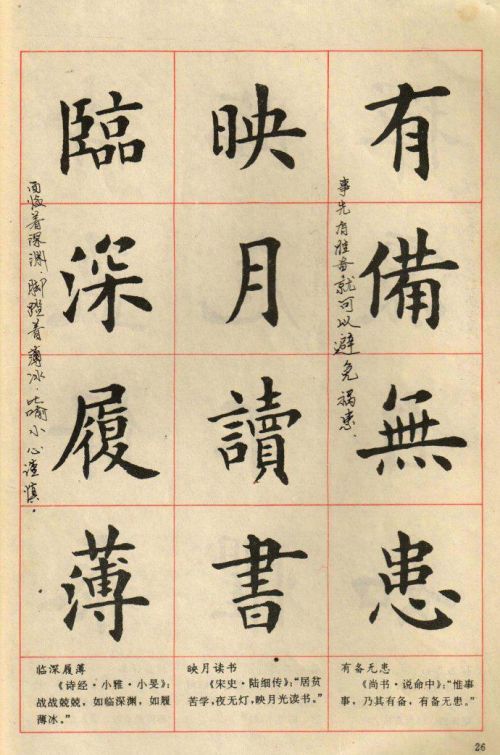 有備無患
事先有准备就可以避免祸患.
映月讀書
臨深履薄
面临着深渊.脚踏着薄冰.比喻小心谨慎。
有备无患
《尚书·说命中》：“惟事
事，乃其有备，有备无患。”
映月读书
《宋史·陆细传》：“居贫
苦学，夜无灯，映月光读书。”
临深履薄
《诗经·小雅·小旻》：
战战兢兢，如临深渊，如履
薄冰。”
26